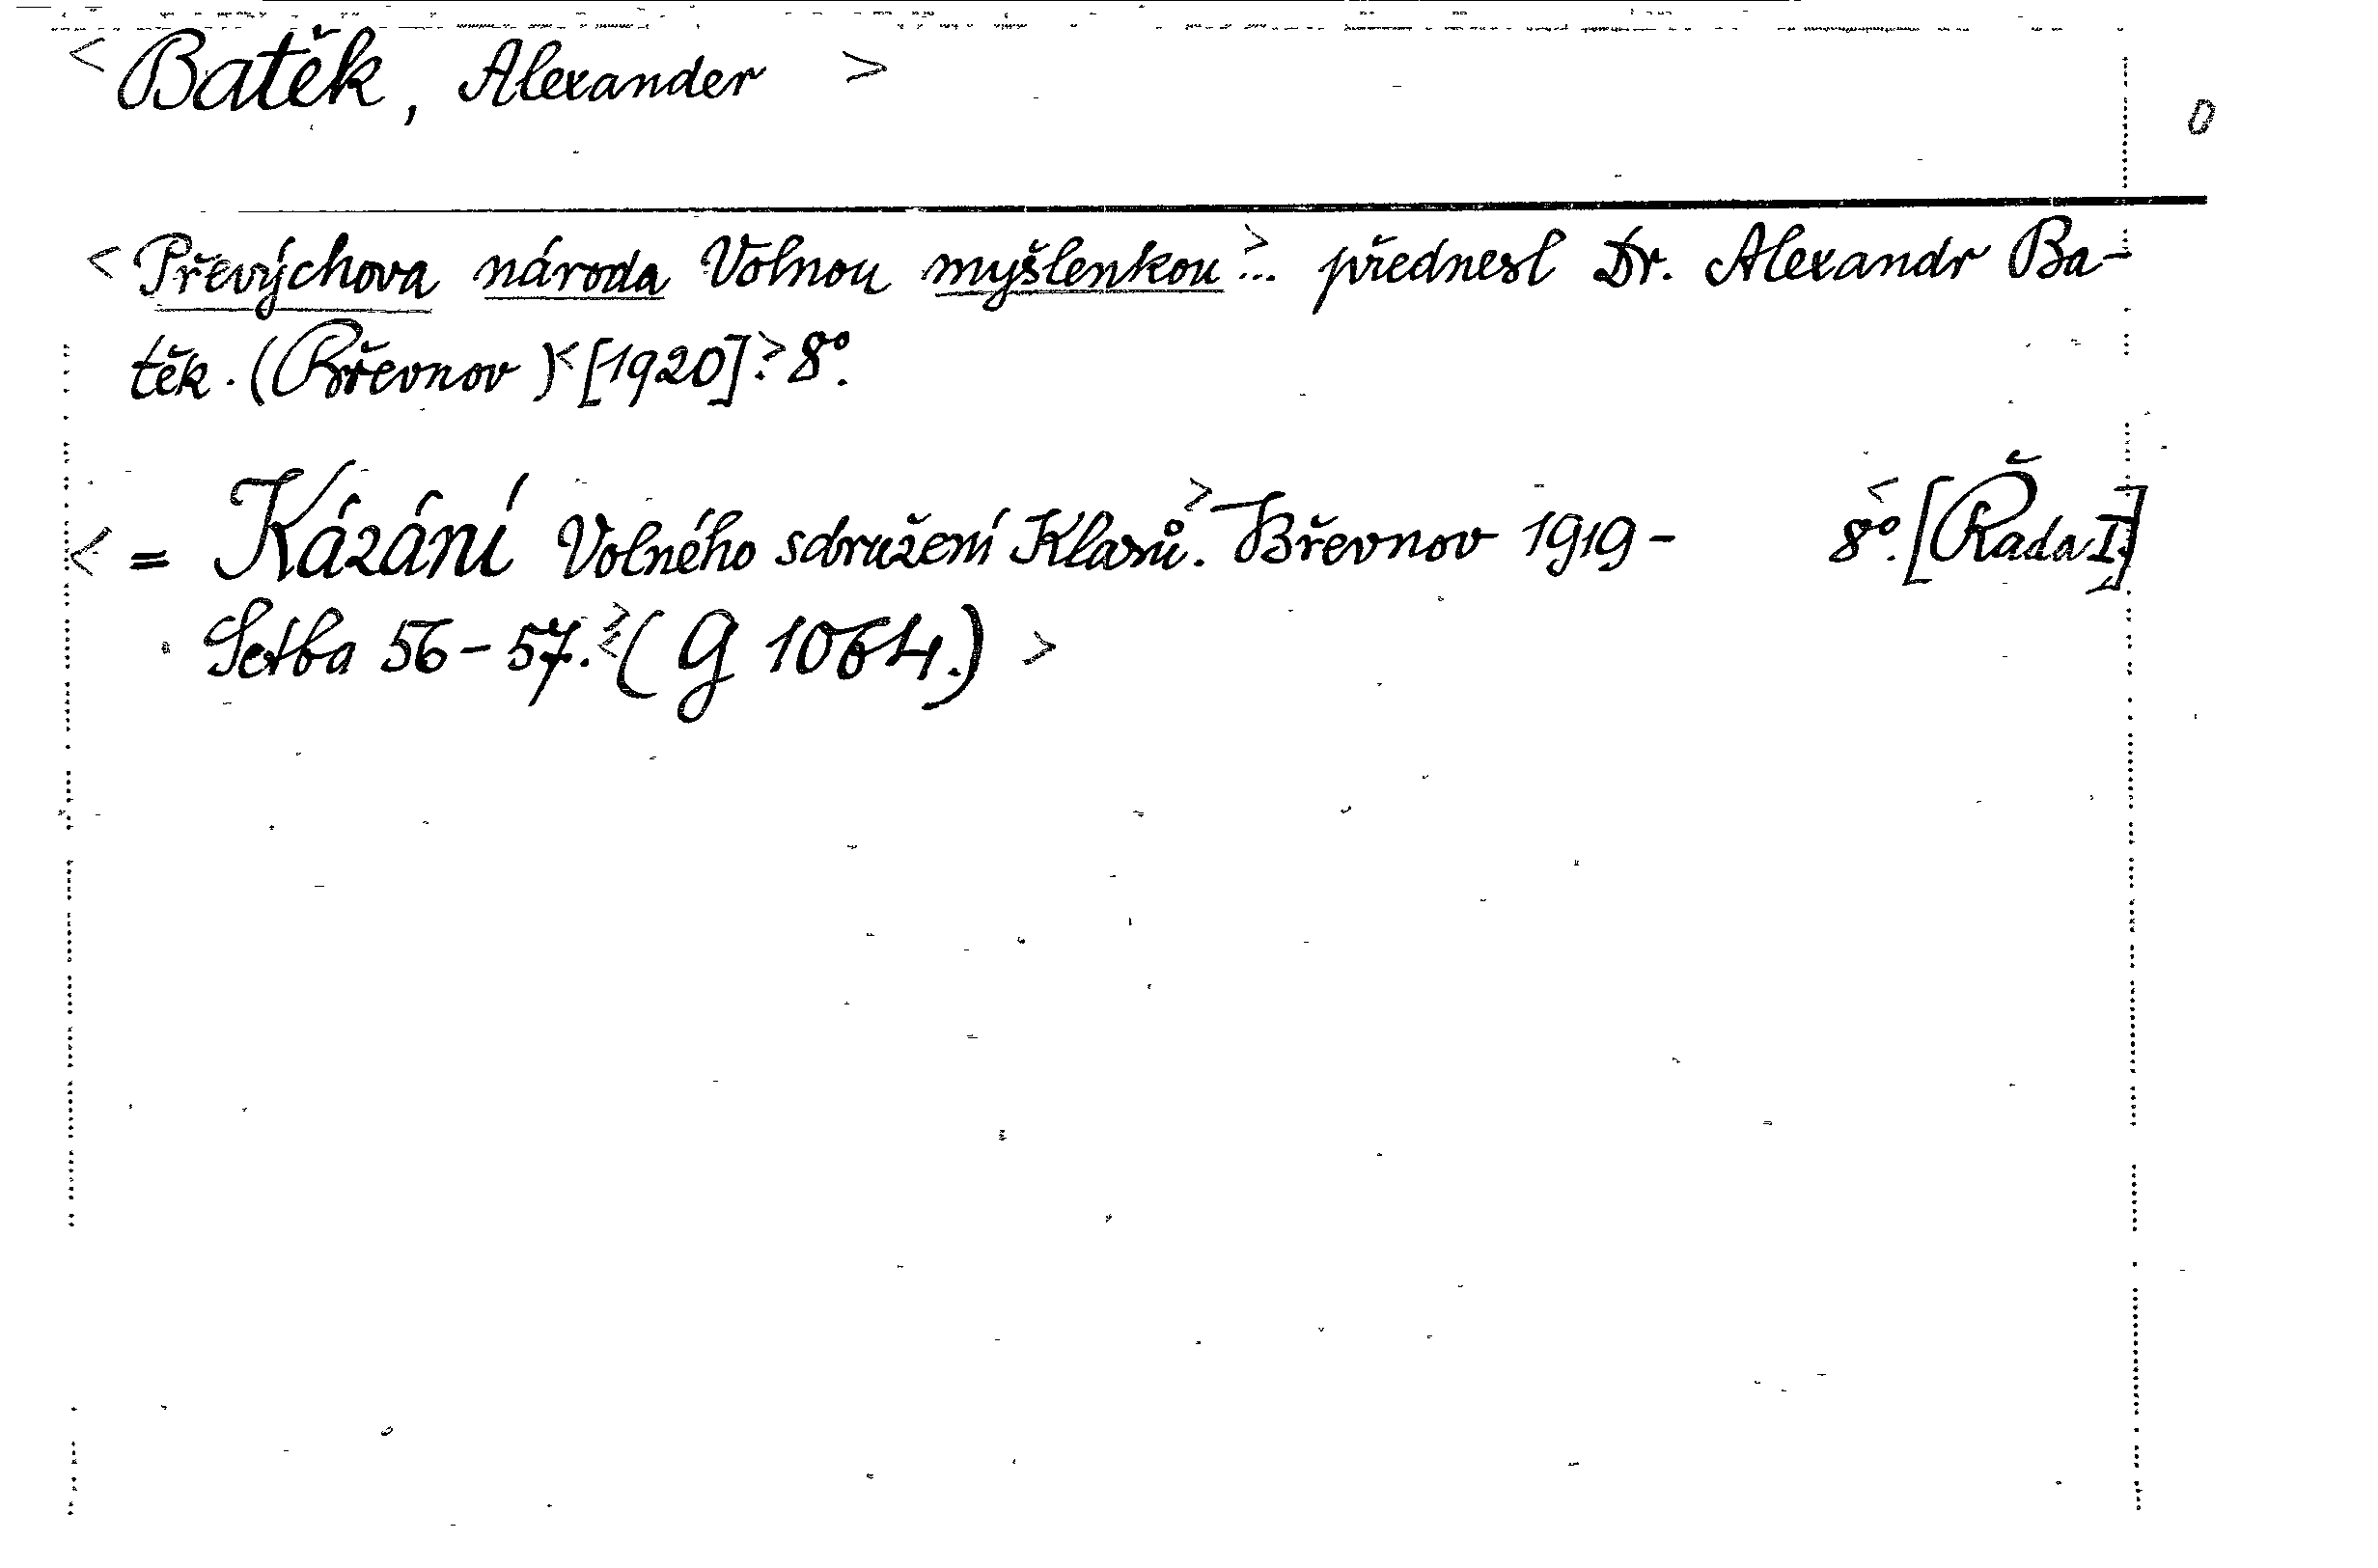 < Batěk, Alexander >
0
< Převýchova národa Volnou myšlenkou >... přednesl Dr. Alexandr Ba-
těk. (Břevnov) < [1920] >. 8°.
< = Kázání Volného sdružení Klasů >. Břevnov 1919 - 8°. < [Řada I.]
Setba 56-57. > < (G 1064.) >